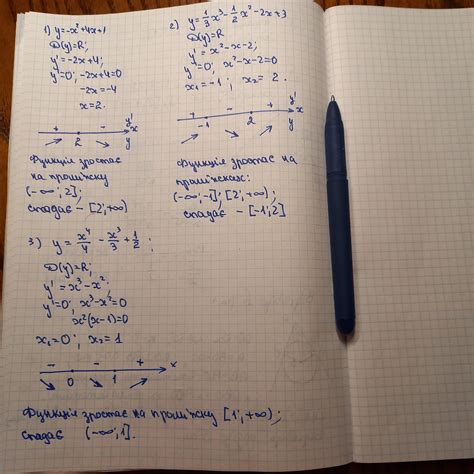 1) y=-x²+4x+1
D(y)=R;
y'=-2x+4;
y'=0; -2x+4=0
-2x=-4
x=2.
+ - y' x
2 y
Функція зростає
на проміжку
(-∞; 2];
спадає - [2; +∞)
2) y=1/3x³-1/2x²-2x+3
D(y)=R
y'=x²-x-2;
y'=0; x²-x-2=0
x₁=-1; x₂=2.
+ - + y' x
-1 2 y
Функція зростає на
проміжках:
(-∞; -1]; [2; +∞);
спадає - [-1; 2]
3) y=x⁴/4-x³/3+1/2;
D(y)=R;
y'=x³-x²;
y'=0; x³-x²=0
x²(x-1)=0
x₁=0; x₂=1
- - + x
0 1
Функція зростає на проміжку [1; +∞);
спадає (-∞; 1].